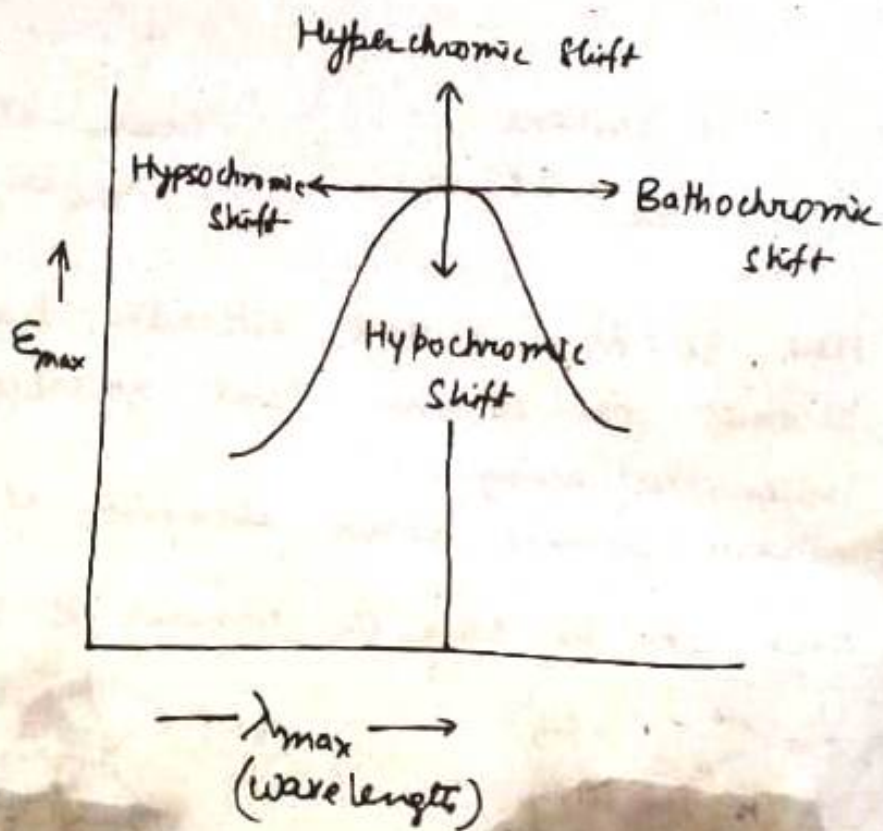 Hyperchromic Shift
Hypsochromic
Shift
Bathochromic
Shift
Hypochromic
Shift
Emax
λmax
(wavelength)